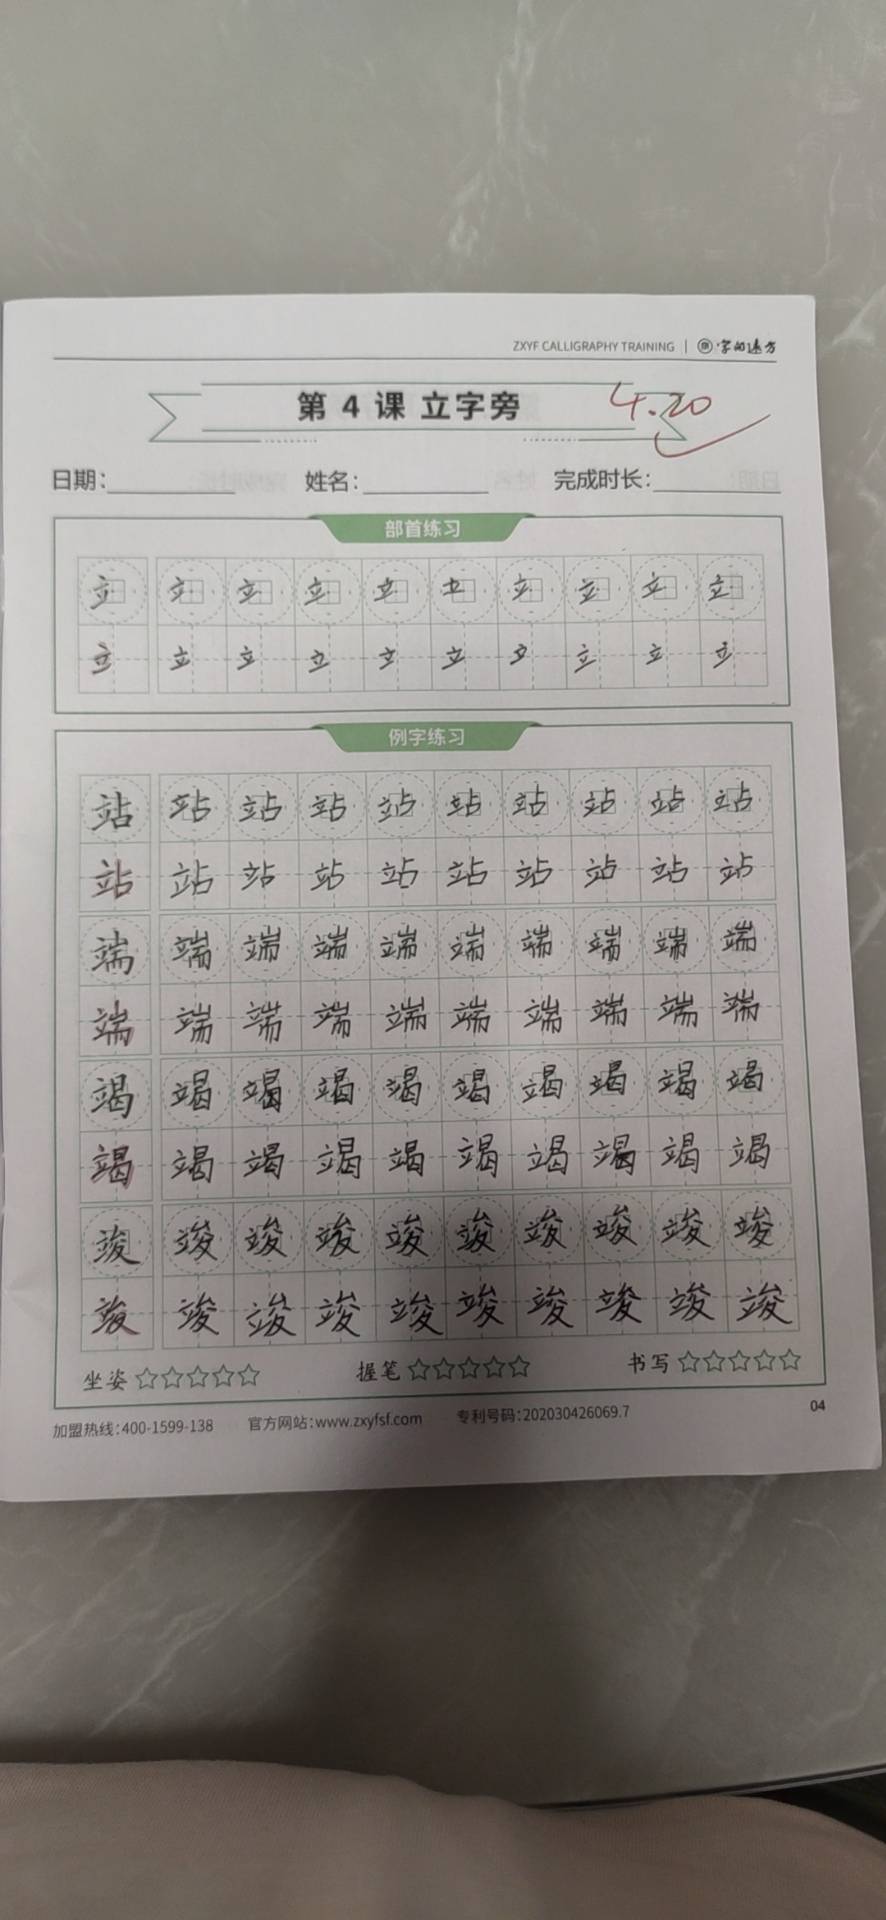 ZXYF CALLIGRAPHY TRAINING | 字的远方
第 4 课 立字旁 4.20
日期: 姓名: 完成时长:
部首练习
立 立 立 立 立 立 立 立 立 立
立 立 立 立 立 立 立 立 立 立
例字练习
站 站 站 站 站 站 站 站 站 站
站 站 站 站 站 站 站 站 站 站
端 端 端 端 端 端 端 端 端 端
端 端 端 端 端 端 端 端 端 端
竭 竭 竭 竭 竭 竭 竭 竭 竭 竭
竭 竭 竭 竭 竭 竭 竭 竭 竭 竭
竣 竣 竣 竣 竣 竣 竣 竣 竣 竣
竣 竣 竣 竣 竣 竣 竣 竣 竣 竣
坐姿☆☆☆☆☆ 握笔☆☆☆☆☆ 书写☆☆☆☆☆
加盟热线:400-1599-138 官方网站:www.zxyfsf.com 专利号码:202030426069.7 04